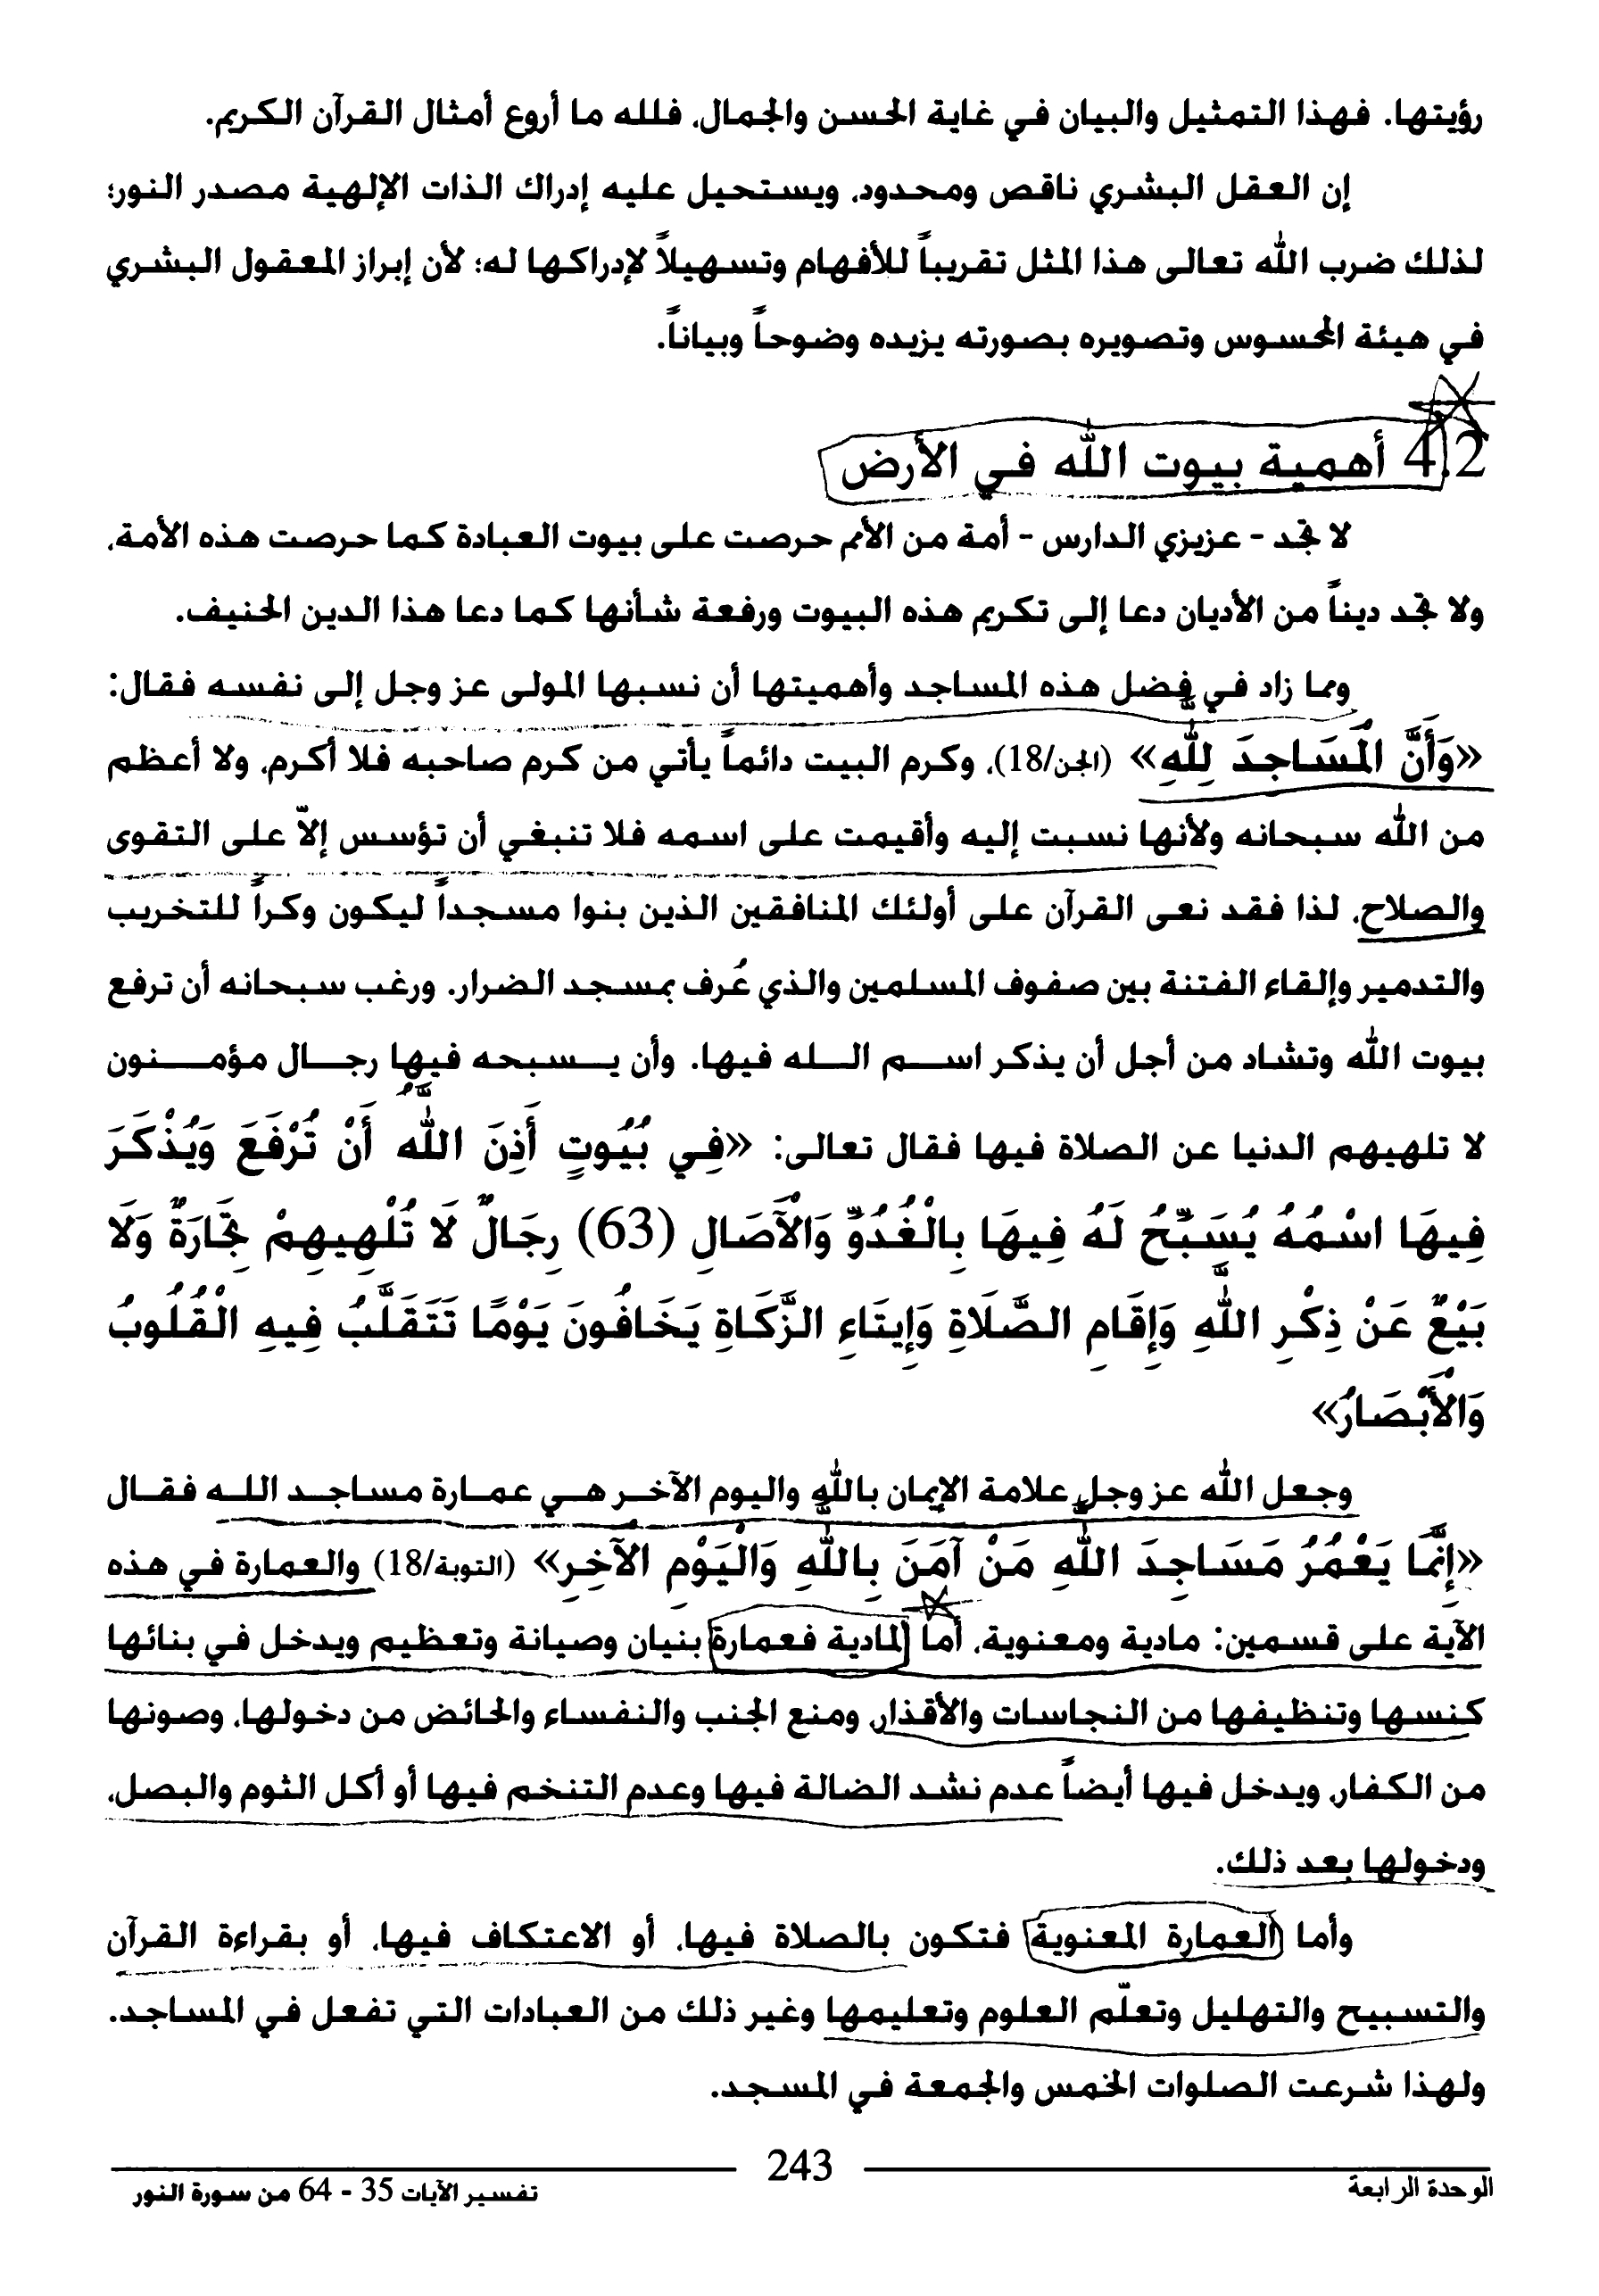 رؤيتها. فهذا التمثيل والبيان في غاية الحسن والجمال، فلله ما أروع أمثال القرآن الكريم.
إن العقل البشري ناقص ومحدود، ويستحيل عليه إدراك الذات الإلهية مصدر النور؛
لذلك ضرب الله تعالى هذا المثل تقريباً للأفهام وتسهيلاً لإدراكها له؛ لأن إبراز المعقول البشري
في هيئة المحسوس وتصويره بصورته يزيده وضوحاً وبياناً.
4.2 أهمية بيوت الله في الأرض
لا نجد - عزيزي الدارس - أمة من الأمم حرصت على بيوت العبادة كما حرصت هذه الأمة،
ولا نجد ديناً من الأديان دعا إلى تكريم هذه البيوت ورفعة شأنها كما دعا هذا الدين الحنيف.
ومما زاد في فضل هذه المساجد وأهميتها أن نسبها المولى عز وجل إلى نفسه فقال:
«وَأَنَّ الْمَسَاجِدَ لِلَّهِ» (الجن/18)، وكرم البيت دائماً يأتي من كرم صاحبه فلا أكرم، ولا أعظم
من الله سبحانه ولأنها نسبت إليه وأقيمت على اسمه فلا تنبغي أن تؤسس إلاّ على التقوى
والصلاح، لذا فقد نعى القرآن على أولئك المنافقين الذين بنوا مسجداً ليكون وكراً للتخريب
والتدمير وإلقاء الفتنة بين صفوف المسلمين والذي عُرف بمسجد الضرار. ورغب سبحانه أن ترفع
بيوت الله وتشاد من أجل أن يذكر اســم الــله فيها. وأن يــسبحه فيها رجــال مؤمــنون
لا تلهيهم الدنيا عن الصلاة فيها فقال تعالى: «فِي بُيُوتٍ أَذِنَ اللَّهُ أَنْ تُرْفَعَ وَيُذْكَرَ
فِيهَا اسْمُهُ يُسَبِّحُ لَهُ فِيهَا بِالْغُدُوِّ وَالْآَصَالِ (63) رِجَالٌ لَا تُلْهِيهِمْ تِجَارَةٌ وَلَا
بَيْعٌ عَنْ ذِكْرِ اللَّهِ وَإِقَامِ الصَّلَاةِ وَإِيتَاءِ الزَّكَاةِ يَخَافُونَ يَوْمًا تَتَقَلَّبُ فِيهِ الْقُلُوبُ
وَالْأَبْصَارُ»
وجعل الله عز وجل علامة الإيمان بالله واليوم الآخـر هـي عمـارة مساجـد اللـه فقـال
«إِنَّمَا يَعْمُرُ مَسَاجِدَ اللَّهِ مَنْ آمَنَ بِاللَّهِ وَالْيَوْمِ الْآخِرِ» (التوبة/18) والعمارة في هذه
الآية على قسمين: مادية ومعنوية، أما المادية فعمارة بنيان وصيانة وتعظيم ويدخل في بنائها
كنسها وتنظيفها من النجاسات والأقذار، ومنع الجنب والنفساء والحائض من دخولها، وصونها
من الكفار، ويدخل فيها أيضاً عدم نشد الضالة فيها وعدم التنخم فيها أو أكل الثوم والبصل،
ودخولها بعد ذلك.
وأما العمارة المعنوية فتكون بالصلاة فيها، أو الاعتكاف فيها، أو بقراءة القرآن
والتسبيح والتهليل وتعلّم العلوم وتعليمها وغير ذلك من العبادات التي تفعل في المساجد.
ولهذا شرعت الصلوات الخمس والجمعة في المسجد.
243
الوحدة الرابعة
تفسير الآيات 35 - 64 من سورة النور